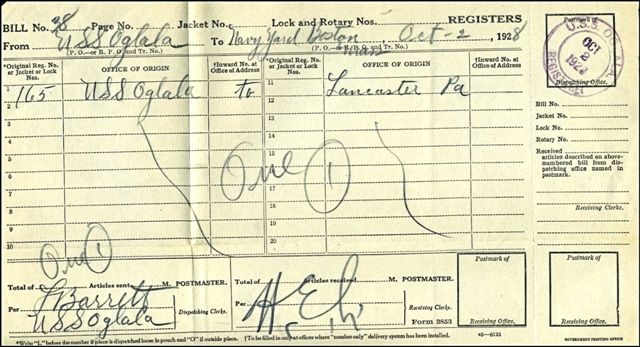 BILL No. 28 Page No. Jacket No. Lock and Rotary Nos. REGISTERS
From USS Oglala To Navy Yard Boston Mass Oct-2, 1928
(P. O.—or R. P. O. and Tr. No.) (P. O.—or R. P. O. and Tr. No.)
*Original Reg. No. or Jacket or Lock Nos. OFFICE OF ORIGIN †Inward No. at Office of Address *Original Reg. No. or Jacket or Lock Nos. OFFICE OF ORIGIN †Inward No. at Office of Address
1 165 USS Oglala to 11 Lancaster Pa
2 12
3 13
4 14
5 15
6 16
7 17
8 18
9 19
10 20
One 1
One 1
Total of Articles sent M. POSTMASTER.
Per L Barrett Dispatching Clerks.
USS Oglala
Total of Articles received M. POSTMASTER.
Per Receiving Clerks.
Form 3853
Postmark of
Receiving Office.
*Write "L" before the number if piece is dispatched loose in pouch and "O" if outside piece. †To be filled in only at offices where "number only" delivery system has been installed. c5—6121
Postmark of
U.S.S. OGLALA
OCT
2
1928
REGISTERED
Dispatching Office.
Bill No.
Jacket No.
Lock No.
Rotary No.
Received
articles described on above-
numbered bill from dis-
patching office named in
postmark.
Receiving Clerks.
Postmark of
Receiving Office.
GOVERNMENT PRINTING OFFICE